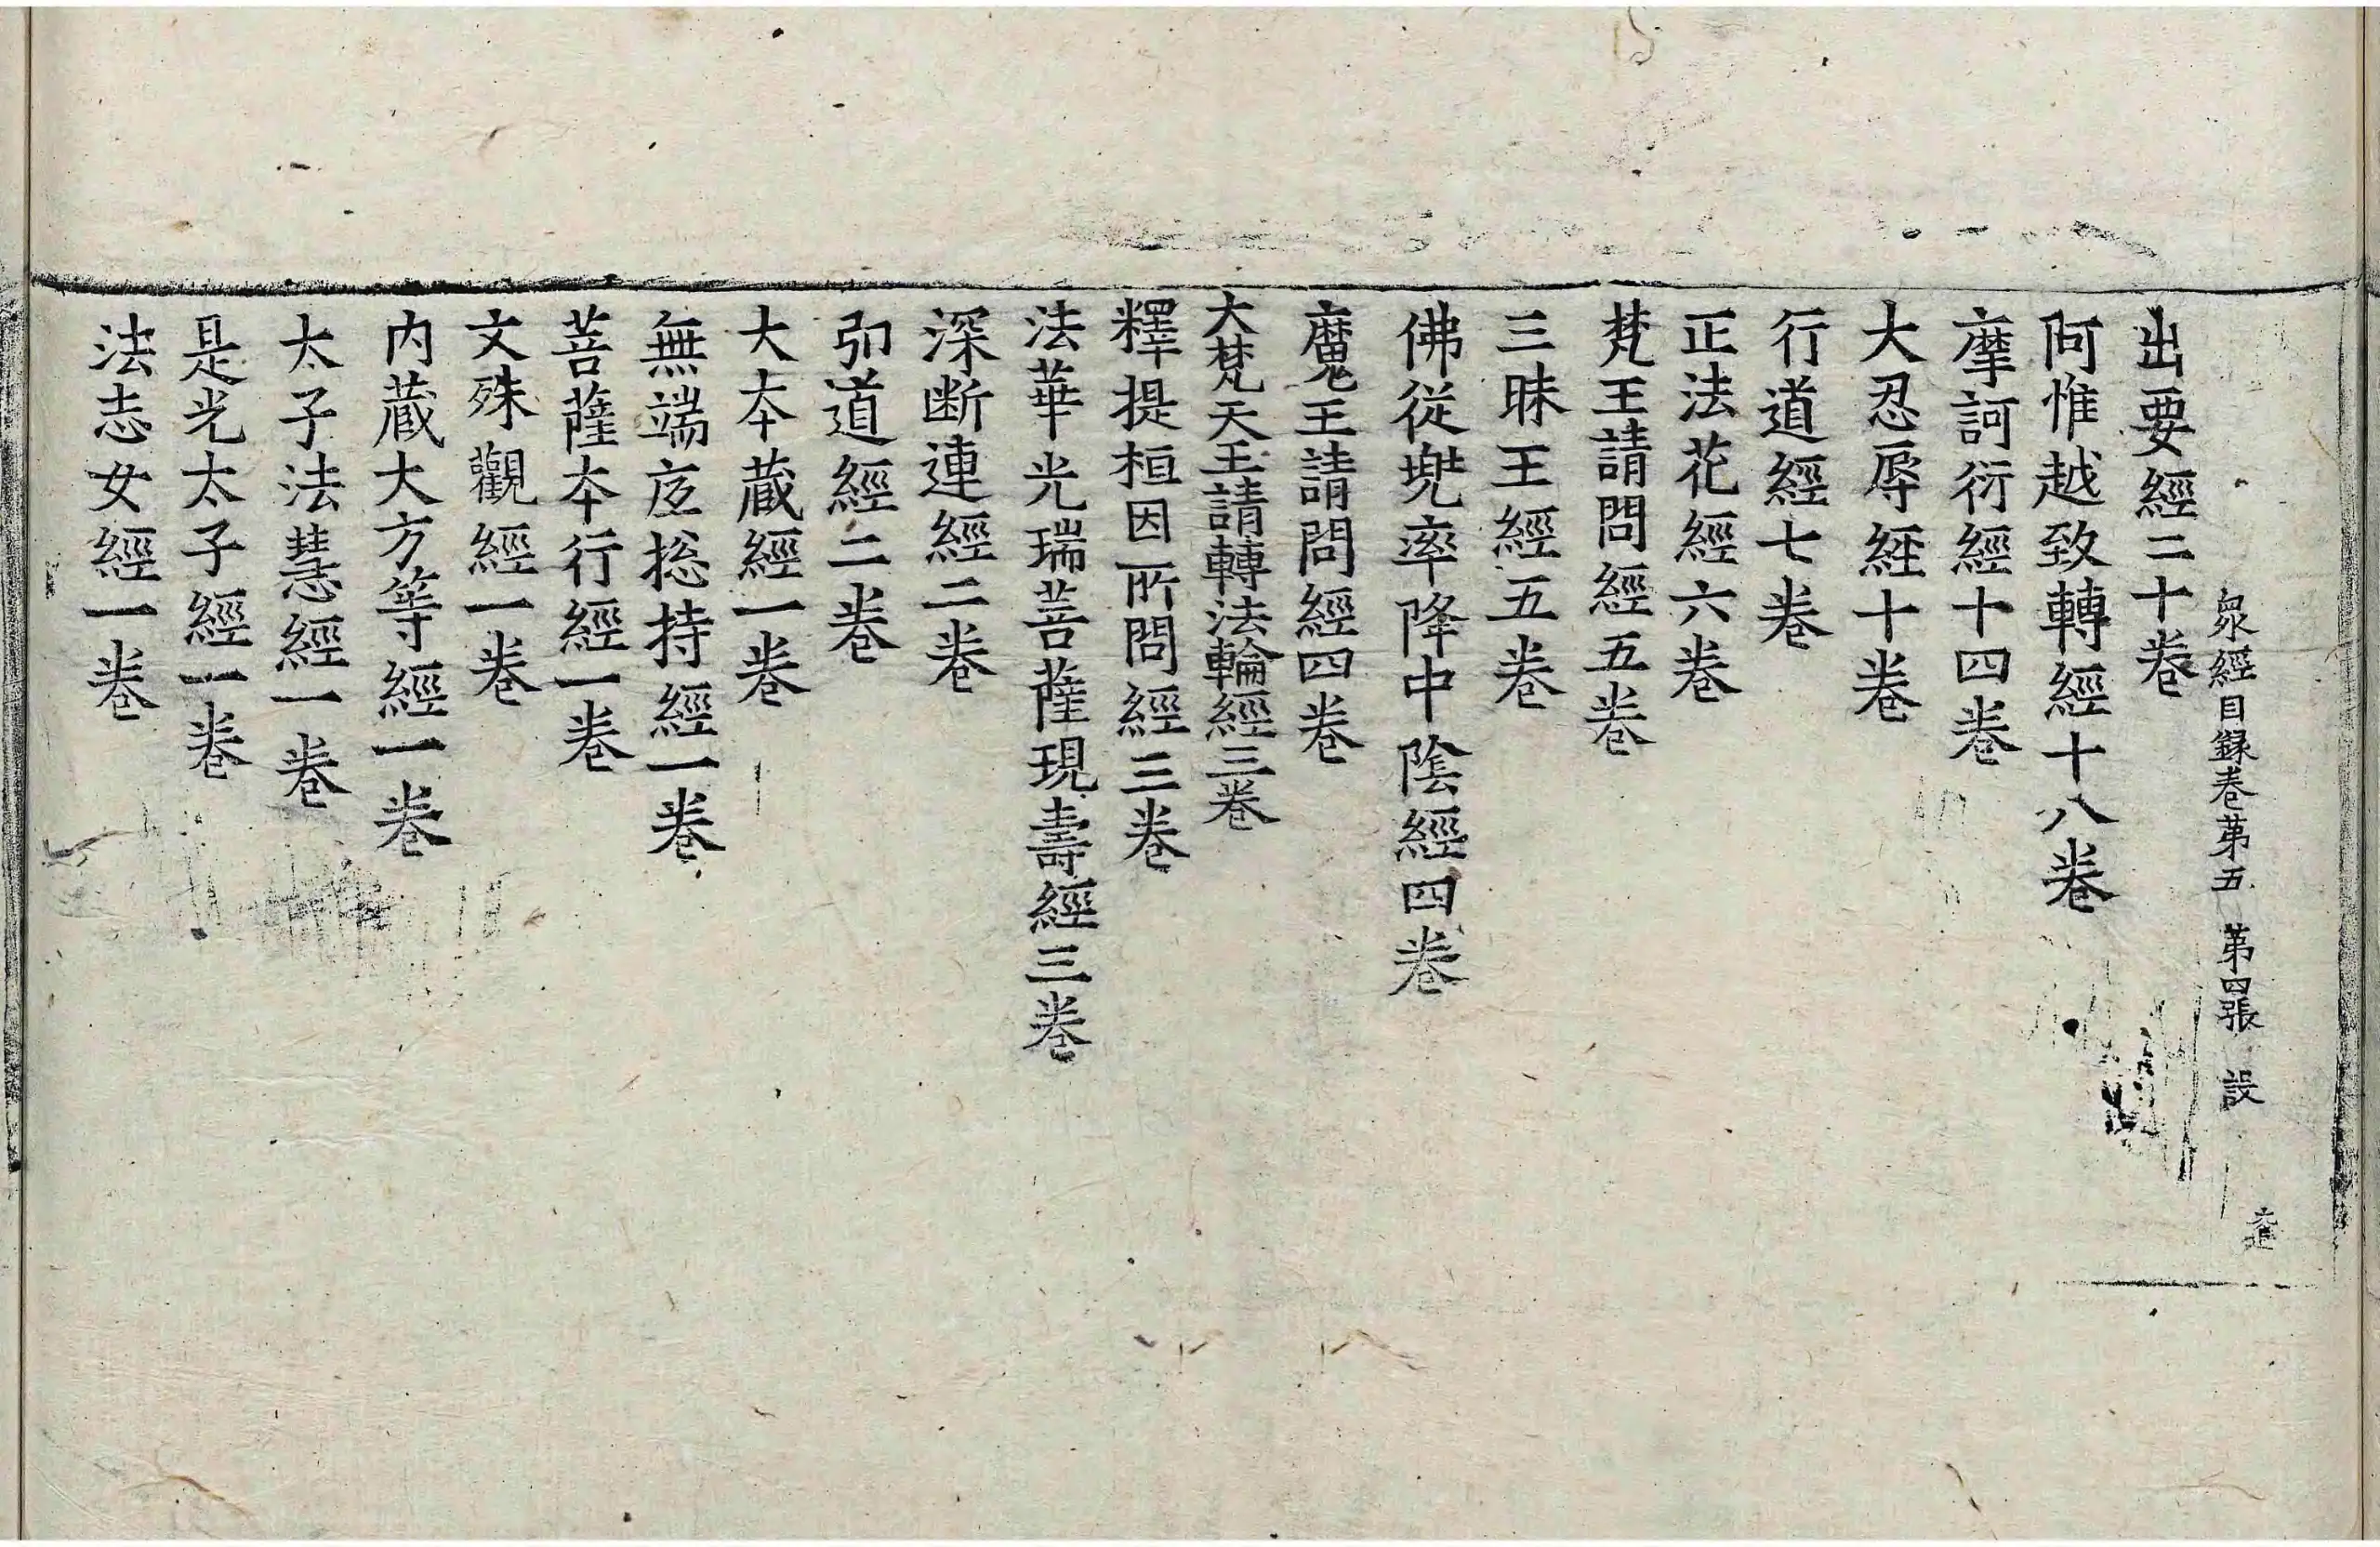 衆經目録卷第五 第四張 設
出要經二十卷
阿惟越致轉經十八卷
摩訶衍經十四卷
大忍辱經十卷
行道經七卷
正法花經六卷
梵王請問經五卷
三昧王經五卷
佛從兜率降中陰經四卷
魔王請問經四卷
大梵天王請轉法輪經三卷
釋提桓因所問經三卷
法華光瑞菩薩現壽經三卷
深断連經二卷
引道經二卷
大本蔵經一卷
無端底捴持經一卷
菩薩本行經一卷
文殊觀經一卷
内蔵大方等經一卷
太子法慧經一卷
是光太子經一卷
法志女經一卷